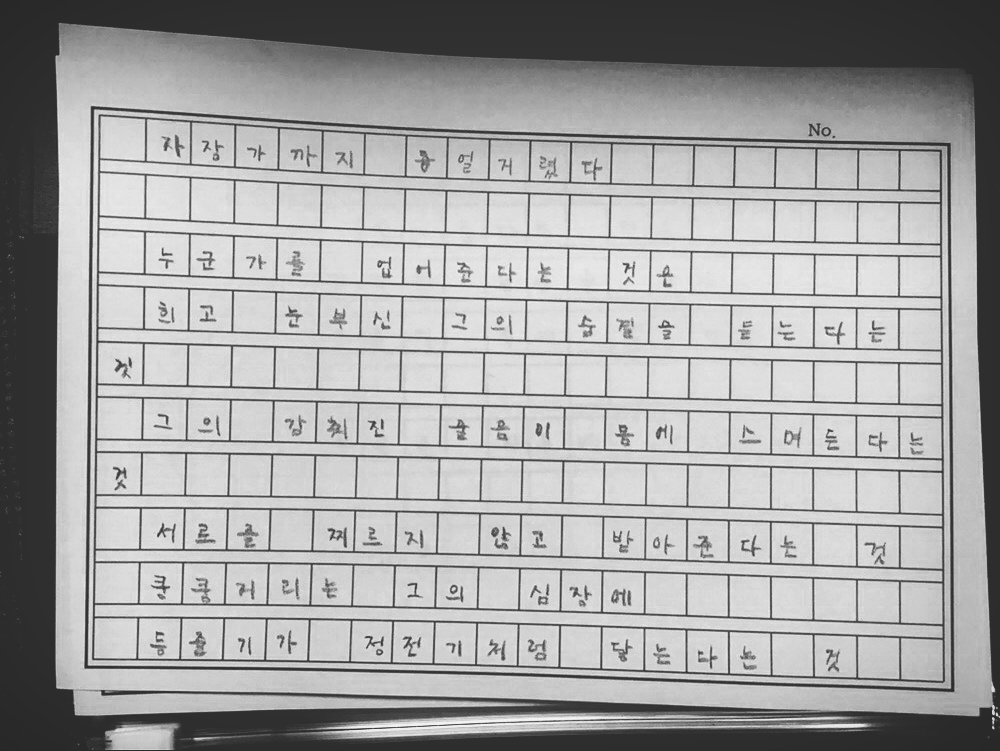 No.
자장가까지 흥얼거렸다
누군가를 업어준다는 것은
희고 눈부신 그의 숨결을 듣는다는
것
그의 감춰진 울음이 몸에 스며든다는
것
서로를 찌르지 않고 받아준다는 것
쿵쿵거리는 그의 심장에
등줄기가 청진기처럼 닿는다는 것